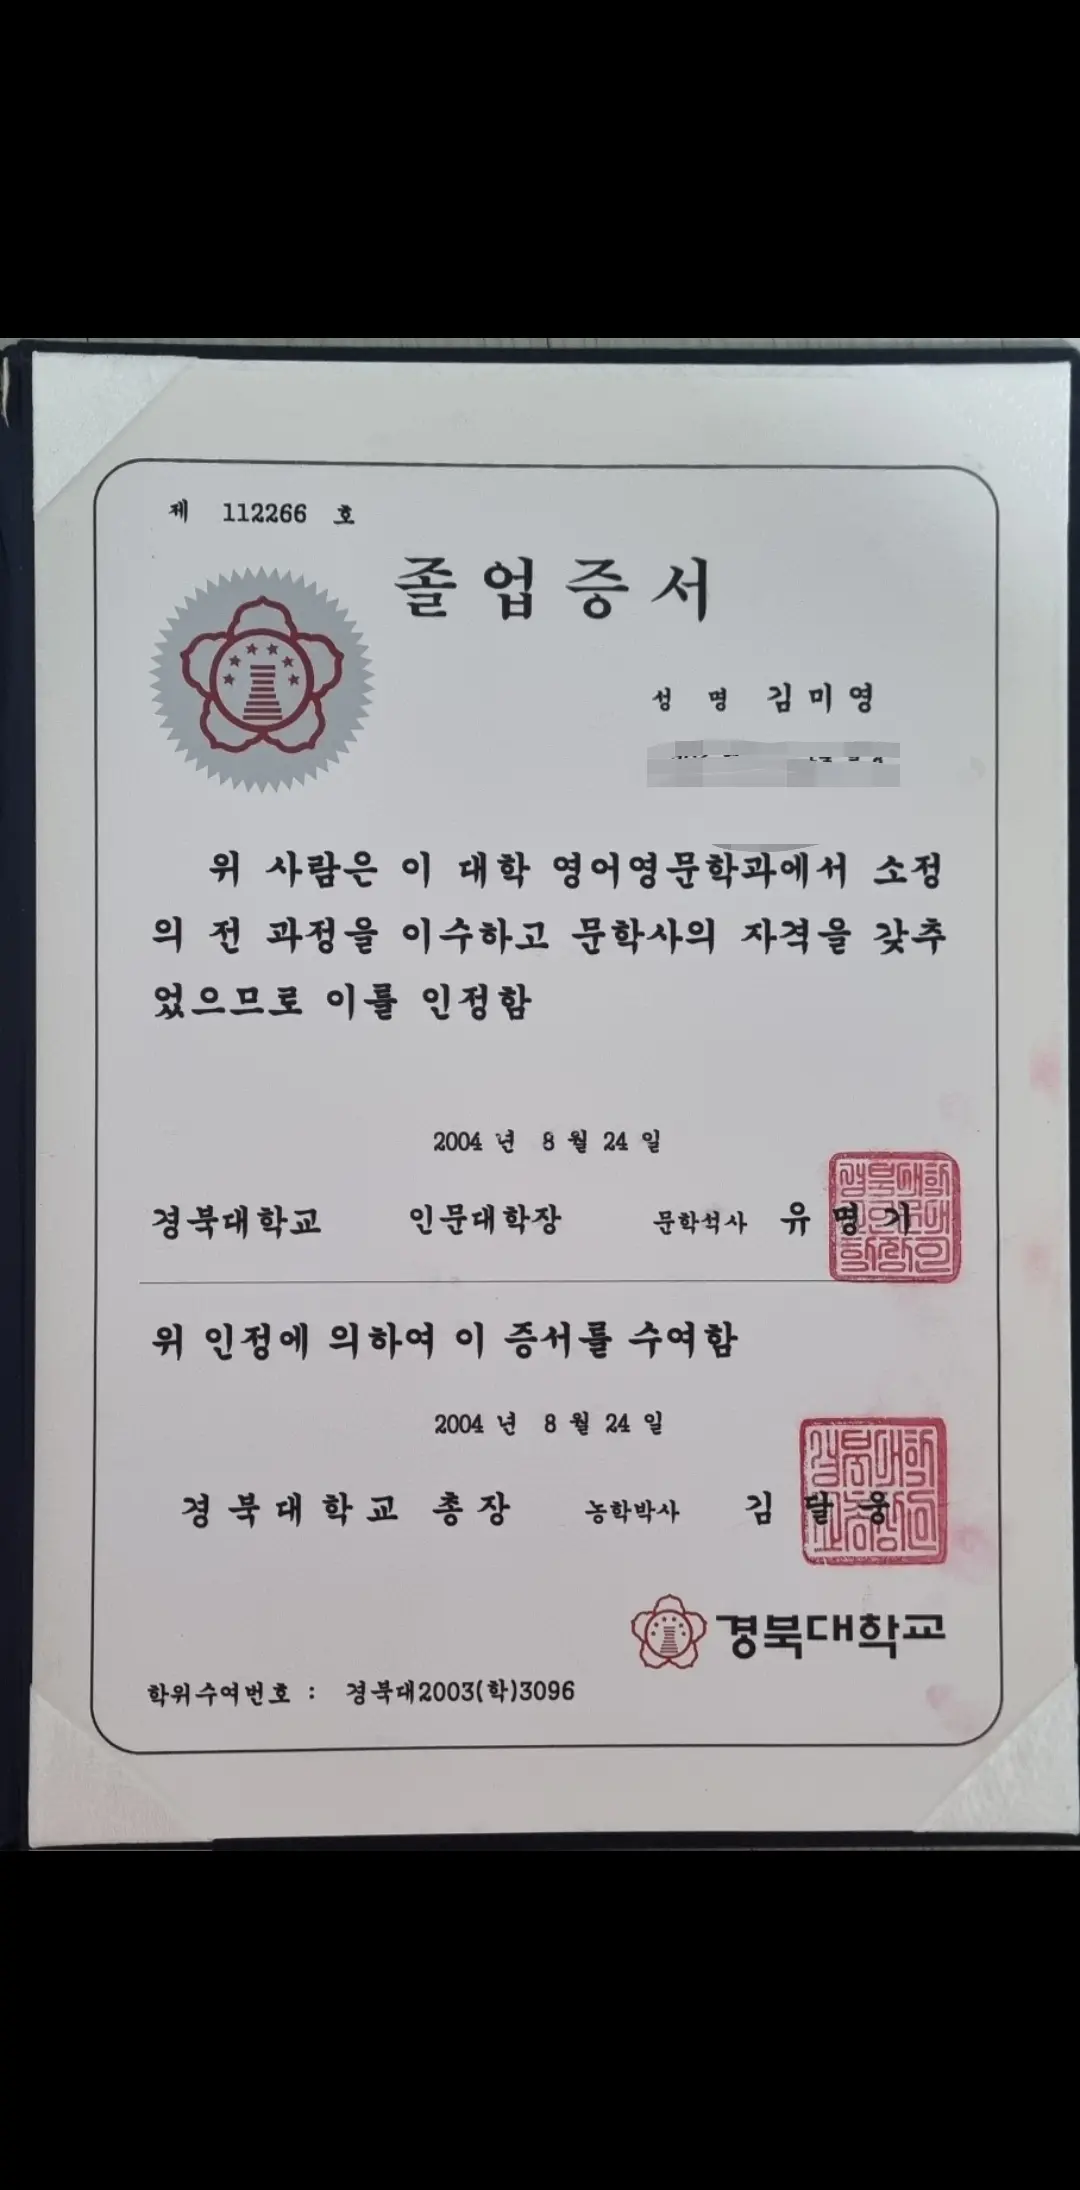 제 112266 호
졸업증서
성 명 김미영
위 사람은 이 대학 영어영문학과에서 소정
의 전 과정을 이수하고 문학사의 자격을 갖추
었으므로 이를 인정함
2004 년 8 월 24 일
경북대학교 인문대학장 문학석사 유명기
위 인정에 의하여 이 증서를 수여함
2004 년 8 월 24 일
경북대학교 총장 농학박사 김달웅
경북대학교
학위수여번호 : 경북대2003(학)3096